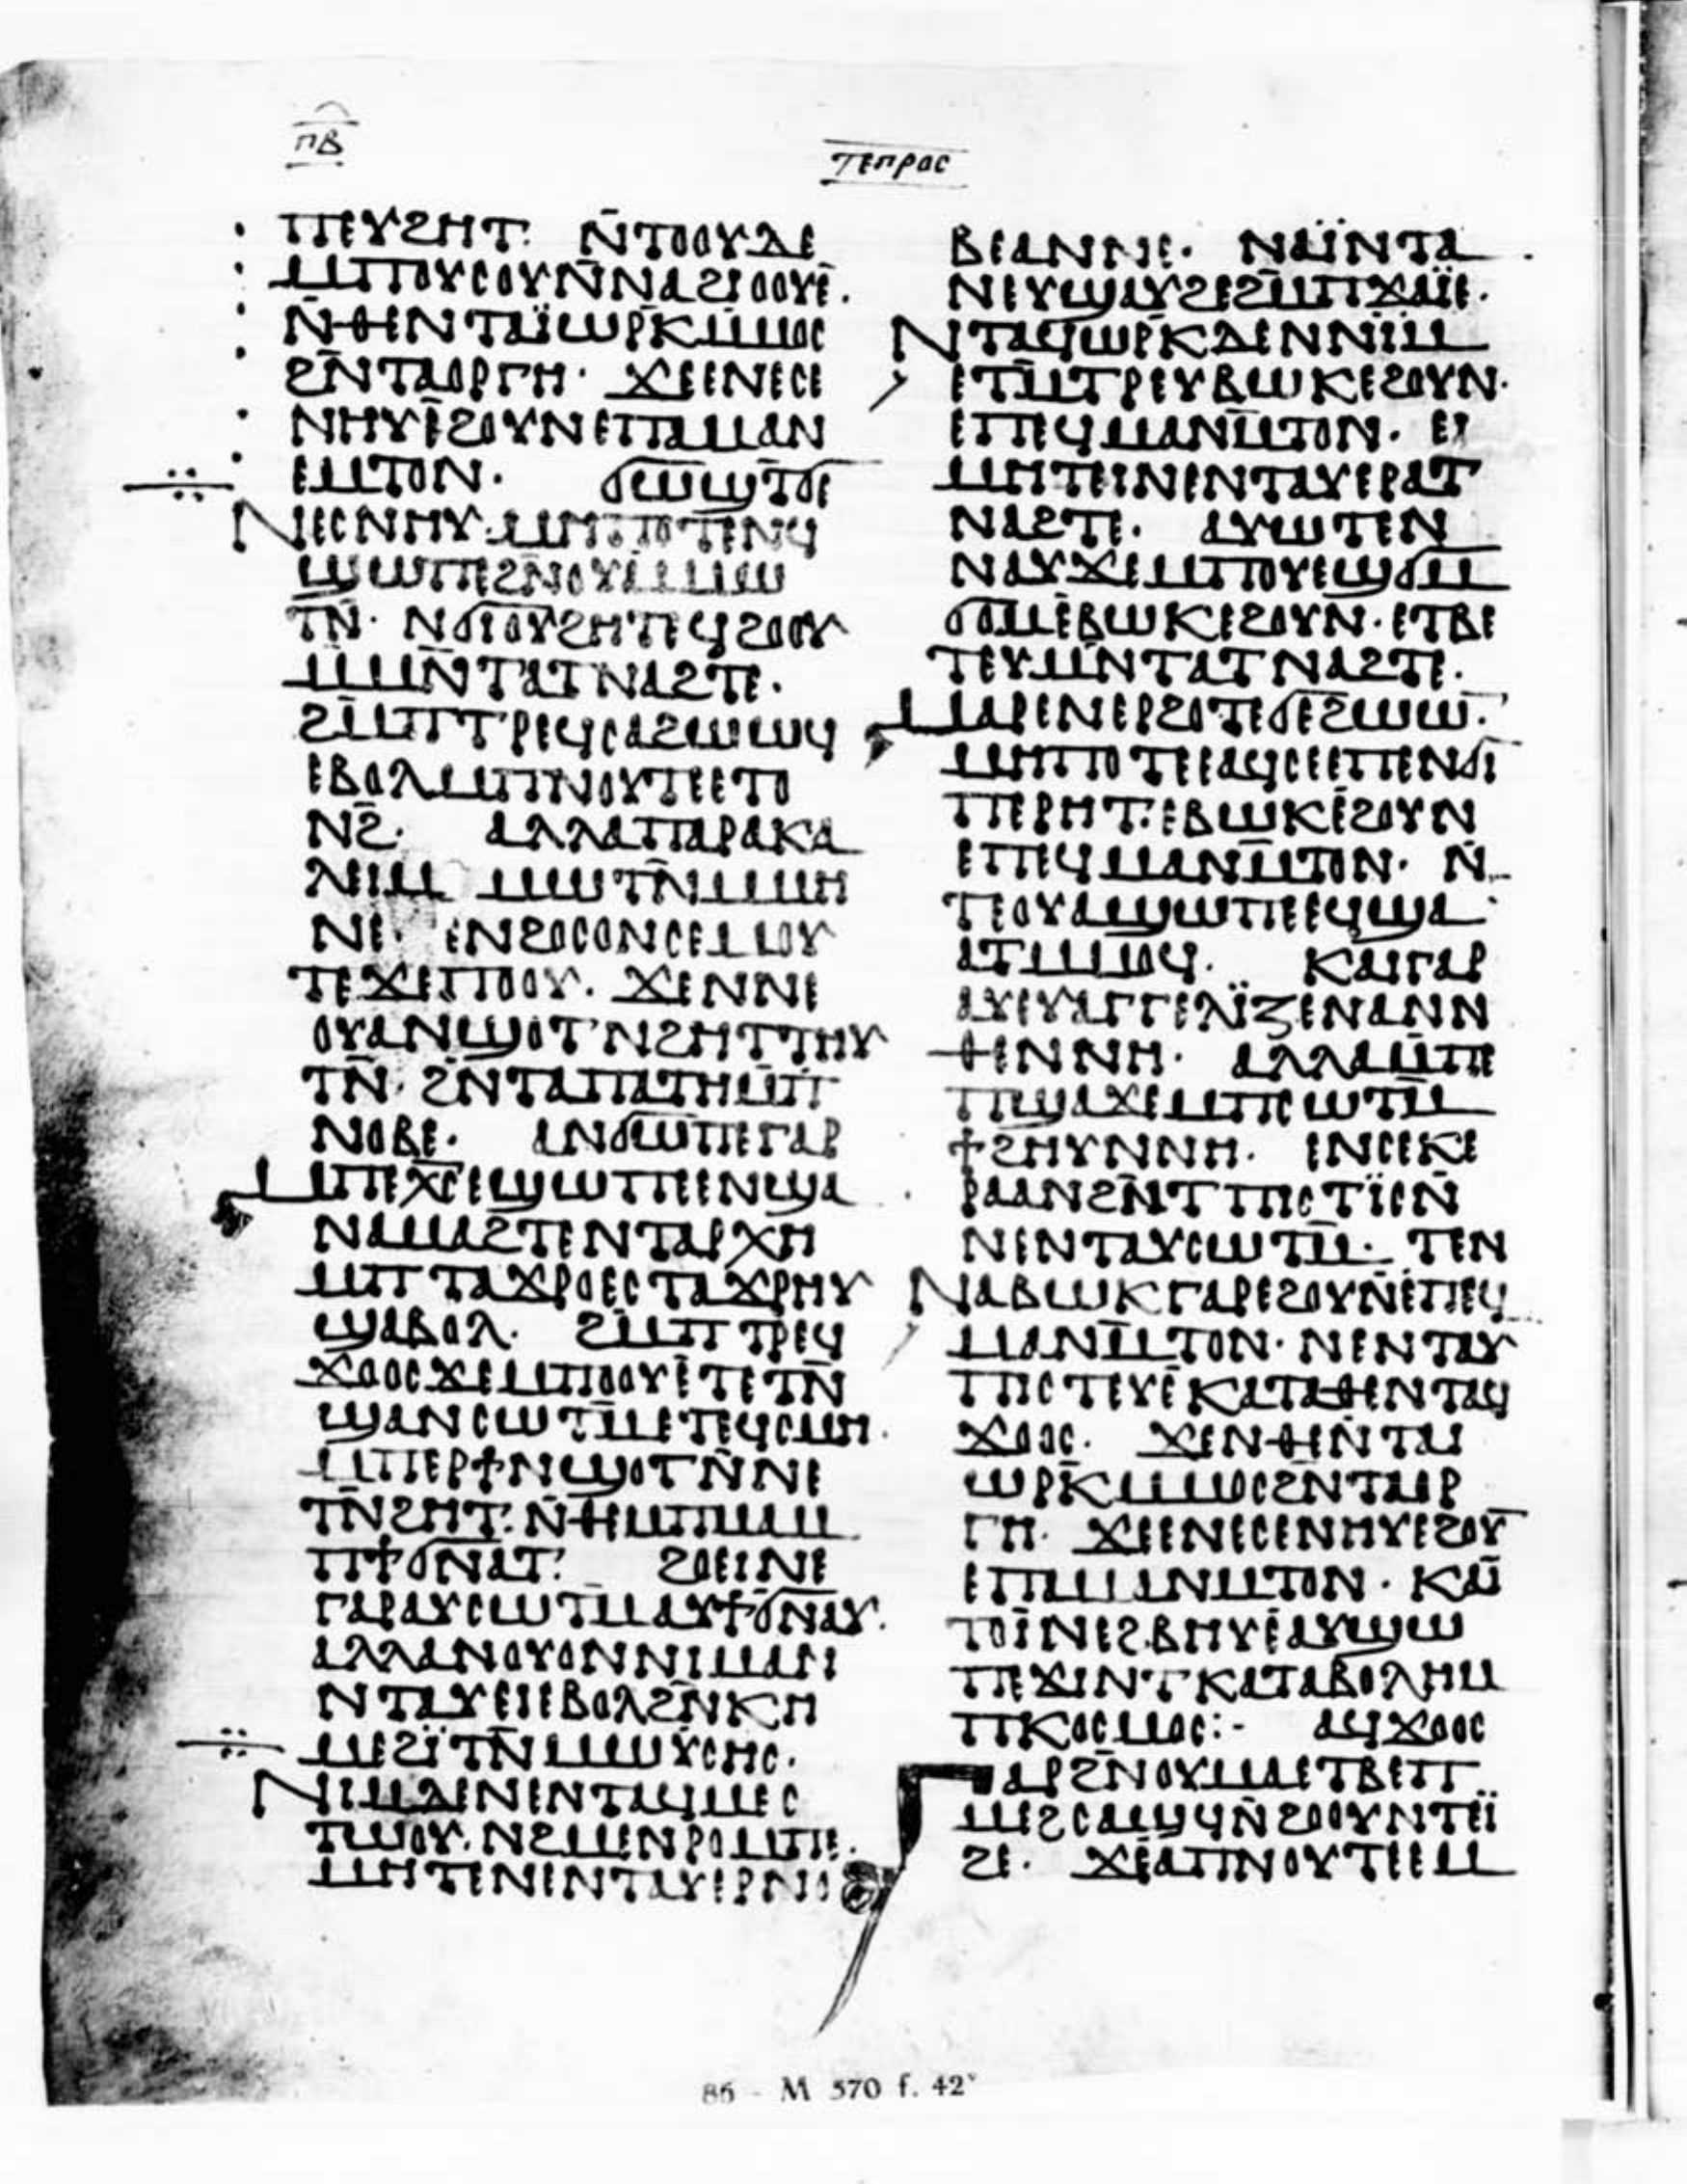 ⲡⲃ
ⲧⲉⲡⲣⲟⲥ
ⲡⲉⲩϩⲏⲧ· ⲛ̄ⲧⲟⲟⲩⲇⲉ
ⲙ̄ⲡⲟⲩⲥⲟⲩⲛ̄ⲛⲁϩⲓⲟⲟⲩⲉ̄·
ⲛ̄ⲑⲉⲛⲧⲁⲓ̈ⲱⲣⲕ̄ⲙ̄ⲙⲟⲥ
ϩⲛ̄ⲧⲁⲟⲣⲅⲏ· ϫⲉⲉⲛⲉⲥⲉ
ⲛⲏⲩⲉ̄ϩⲟⲩⲛⲉⲡⲁⲙⲁⲛ
ⲉⲙⲧⲟⲛ· ϭⲱϣⲧϭⲉ
ⲛⲉⲥⲛⲏⲩ·ⲙⲏⲡⲟⲧⲉⲛϥ
ϣⲱⲡⲉϩⲛ̄ⲟⲩⲁⲙⲙⲱ
ⲧⲛ̄· ⲛϭⲓⲟⲩϩⲏⲧⲉϥϩⲟⲟⲩ
ⲙ̄ⲙⲛ̄ⲧⲁⲧⲛⲁϩⲧⲉ·
ϩⲙ̄ⲡⲧⲣⲉϥⲥⲁϩⲱⲱϥ
ⲉⲃⲟⲗⲙ̄ⲡⲛⲟⲩⲧⲉⲉⲧⲟ
ⲛϩ̄· ⲁⲗⲗⲁⲡⲁⲣⲁⲕⲁ
ⲗⲉⲓⲙ ⲙⲱⲧⲛ̄ⲙⲙⲏ
ⲛⲉ· ⲉⲛϩⲟⲥⲟⲛⲥⲉⲙⲟⲩ
ⲧⲉϫⲉⲡⲟⲟⲩ· ϫⲉⲛⲛⲉ
ⲟⲩⲁⲛϣⲟⲧ'ⲛϩⲏⲧⲧⲏⲩ
ⲧⲛ̄· ϩⲛ̄ⲧⲁⲡⲁⲧⲏⲙ̄ⲡ
ⲛⲟⲃⲉ· ⲁⲛϭⲱⲡⲉⲅⲁⲣ
ⲙ̄ⲡⲉⲭ̄ⲥ̄ⲉϣⲱⲡⲉⲉⲛϣⲁ
ⲛⲁⲙⲁϩⲧⲉⲛⲧⲁⲣⲭⲏ
ⲙ̄ⲡⲧⲁϫⲣⲟⲉⲥⲧⲁϫⲣⲏⲩ
ϣⲁⲃⲟⲗ· ϩⲙ̄ⲡⲧⲣⲉϥ
ϫⲟⲟⲥϫⲉⲙ̄ⲡⲟⲟⲩⲉ̄ⲧⲉⲧⲛ̄
ϣⲁⲛⲥⲱⲧⲙ̄ⲉⲧⲉϥⲥⲙⲏ·
ⲙ̄ⲡⲉⲣϯⲛϣⲟⲧⲛ̄ⲛⲉ
ⲧⲛ̄ϩⲏⲧ·ⲛ̄ⲑⲉⲙ̄ⲡⲙⲁⲙ
ⲡϯϭⲛⲁⲧ· ϩⲟⲉⲓⲛⲉ
ⲅⲁⲣⲁⲩⲥⲱⲧⲙⲁⲩϯϭⲛⲁⲩ·
ⲁⲗⲗⲁⲛⲟⲩⲟⲛⲛⲓⲙⲁⲛⲉ
ⲛⲧⲁⲩⲉⲓⲉⲃⲟⲗϩⲛ̄ⲕⲏ
ⲙⲉϩⲓ̈ⲧⲛ̄ⲙⲱⲩ̈ⲥⲏⲥ·
ⲛⲓⲙⲇⲉⲛⲉⲛⲧⲁϥⲙⲉⲥ
ⲧⲱⲟⲩ·ⲛϩⲙⲉⲛⲣⲟⲙⲡⲉ·
ⲙⲏⲧⲉⲛⲉⲛⲧⲁⲩⲉⲣⲛⲟ
ⲃⲉⲁⲛⲛⲉ· ⲛⲁⲓ̈ⲛⲧⲁ
ⲛⲉⲩϣⲁⲩϩⲉϩⲙ̄ⲡϫⲁⲓ̈ⲉ·
ⲛⲧⲁϥⲱⲣⲕⲇⲉⲛⲛⲓⲙ
ⲉⲧⲙ̄ⲧⲣⲉⲩⲃⲱⲕⲉϩⲟⲩⲛ·
ⲉⲡⲉϥⲙⲁⲛⲙ̄ⲧⲟⲛ· ⲉⲓ
ⲙⲏⲧⲉⲓⲛⲉⲛⲧⲁⲩⲉⲣⲁⲧ
ⲛⲁϩⲧⲉ· ⲁⲩⲱⲧⲉⲛ
ⲛⲁⲩϫⲉⲙⲡⲟⲩⲉϣϭⲙ
ϭⲟⲙⲉ̄ⲃⲱⲕⲉϩⲟⲩⲛ·ⲉⲧⲃⲉ
ⲧⲉⲩⲙⲛ̄ⲧⲁⲧⲛⲁϩⲧⲉ·
ⲙⲁⲣⲉⲛⲉⲣϩⲟⲧⲉϭⲉϩⲱⲱ·
ⲙⲏⲡⲟⲧⲉⲉⲁϥⲥⲉⲉⲡⲉⲛϭⲓ
ⲡⲉⲣⲏⲧ·ⲉⲃⲱⲕⲉ̄ϩⲟⲩⲛ
ⲉⲡⲉϥⲙⲁⲛⲙ̄ⲧⲟⲛ· ⲛ̄
ⲧⲉⲟⲩⲁϣⲱⲡⲉⲉϥϣⲁ
ⲁⲧⲙ̄ⲙⲟϥ· ⲕⲁⲓⲅⲁⲣ
ⲁⲩⲉⲩⲁⲅⲅⲉⲗⲓ̈ⲍⲉⲛⲁⲛⲛ
ⲑⲉⲛⲛⲏ· ⲁⲗⲗⲁⲙ̄ⲡⲉ
ⲡϣⲁϫⲉⲙⲡⲥⲱⲧⲙ̄
ϯϩⲏⲩⲛⲛⲏ· ⲉⲛⲥⲉⲕⲉ
ⲣⲁⲁⲛϩⲛ̄ⲧⲡⲓⲥⲧⲓ̈ⲥⲛ̄
ⲛⲉⲛⲧⲁⲩⲥⲱⲧⲙ̄· ⲧⲉⲛ
ⲛⲁⲃⲱⲕⲅⲁⲣⲉϩⲟⲩⲛ̄ⲉⲡⲉϥ
ⲙⲁⲛⲙ̄ⲧⲟⲛ·ⲛⲉⲛⲧⲁⲩ
ⲡⲓⲥⲧⲉⲩⲉ̄ⲕⲁⲧⲁⲑⲉⲛⲧⲁϥ
ϫⲟⲟⲥ· ϫⲉⲛⲑⲉⲛ̄ⲧⲁⲓ
ⲱⲣⲕ̄ⲙⲙⲟⲥϩⲛ̄ⲧⲁⲟⲣ
ⲅⲏ· ϫⲉⲉⲛⲉⲥⲉⲛⲏⲩⲉϩⲟⲩ̄
ⲉⲡⲁⲙⲁⲛⲙ̄ⲧⲟⲛ·ⲕⲁⲓ̄
ⲧⲟⲓ̈ⲛⲉϩⲃⲏⲩⲉ̄ⲁⲩϣⲱ
ⲡⲉϫⲓⲛⲧⲕⲁⲧⲁⲃⲟⲗⲏⲙ̄
ⲡⲕⲟⲥⲙⲟⲥ:- ⲁϥϫⲟⲟⲥ
ⲅⲁⲣϩⲛ̄ⲟⲩⲙⲁⲉⲧⲃⲉⲡ
ⲙⲉϩⲥⲁϣϥⲛ̄ϩⲟⲟⲩⲛⲧⲉⲓ̈
ϩⲉ· ϫⲉⲁⲡⲛⲟⲩⲧⲉⲉⲙ
86 - M 570 f. 42ᵛ